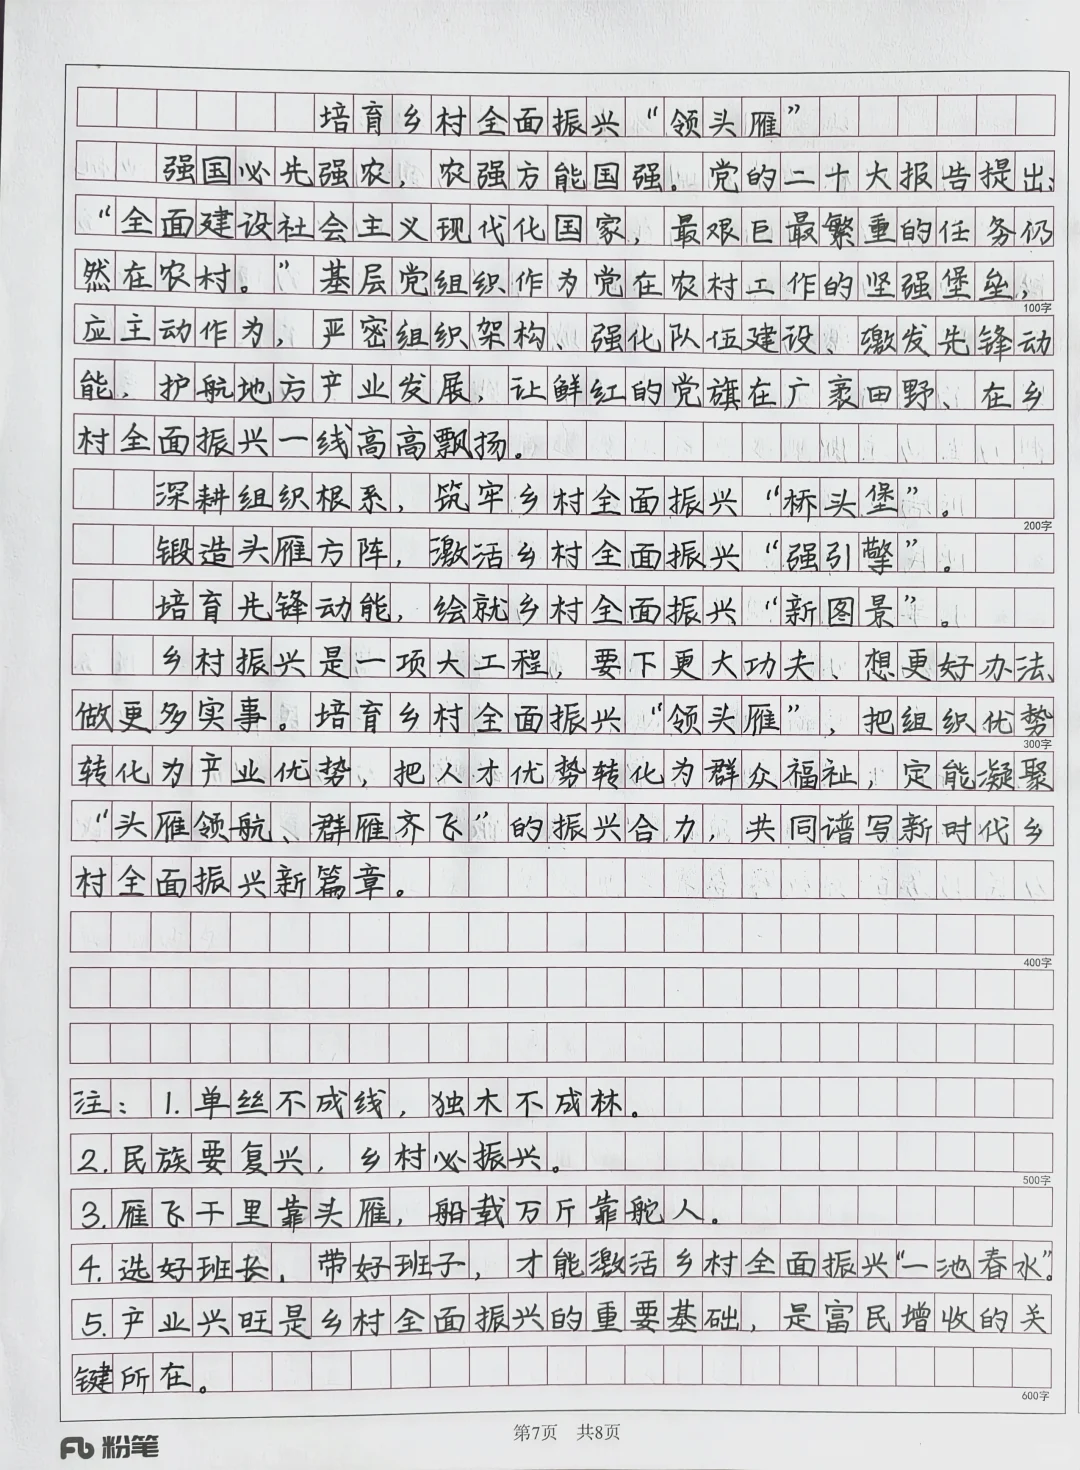 培育乡村全面振兴“领头雁”
强国必先强农，农强方能国强。党的二十大报告提出：
“全面建设社会主义现代化国家，最艰巨最繁重的任务仍
然在农村。”基层党组织作为党在农村工作的坚强堡垒，
100字
应主动作为，严密组织架构、强化队伍建设、激发先锋动
能，护航地方产业发展，让鲜红的党旗在广袤田野、在乡
村全面振兴一线高高飘扬。
深耕组织根系，筑牢乡村全面振兴“桥头堡”。
200字
锻造头雁方阵，激活乡村全面振兴“强引擎”。
培育先锋动能，绘就乡村全面振兴“新图景”。
乡村振兴是一项大工程，要下更大功夫、想更好办法、
做更多实事。培育乡村全面振兴“领头雁”，把组织优势
300字
转化为产业优势，把人才优势转化为群众福祉，定能凝聚
“头雁领航、群雁齐飞”的振兴合力，共同谱写新时代乡
村全面振兴新篇章。
400字
注：1.单丝不成线，独木不成林。
2.民族要复兴，乡村必振兴。
500字
3.雁飞千里靠头雁，船载万斤靠舵人。
4.选好班长，带好班子，才能激活乡村全面振兴“一池春水”。
5.产业兴旺是乡村全面振兴的重要基础，是富民增收的关
键所在。
600字
第7页 共8页
粉笔